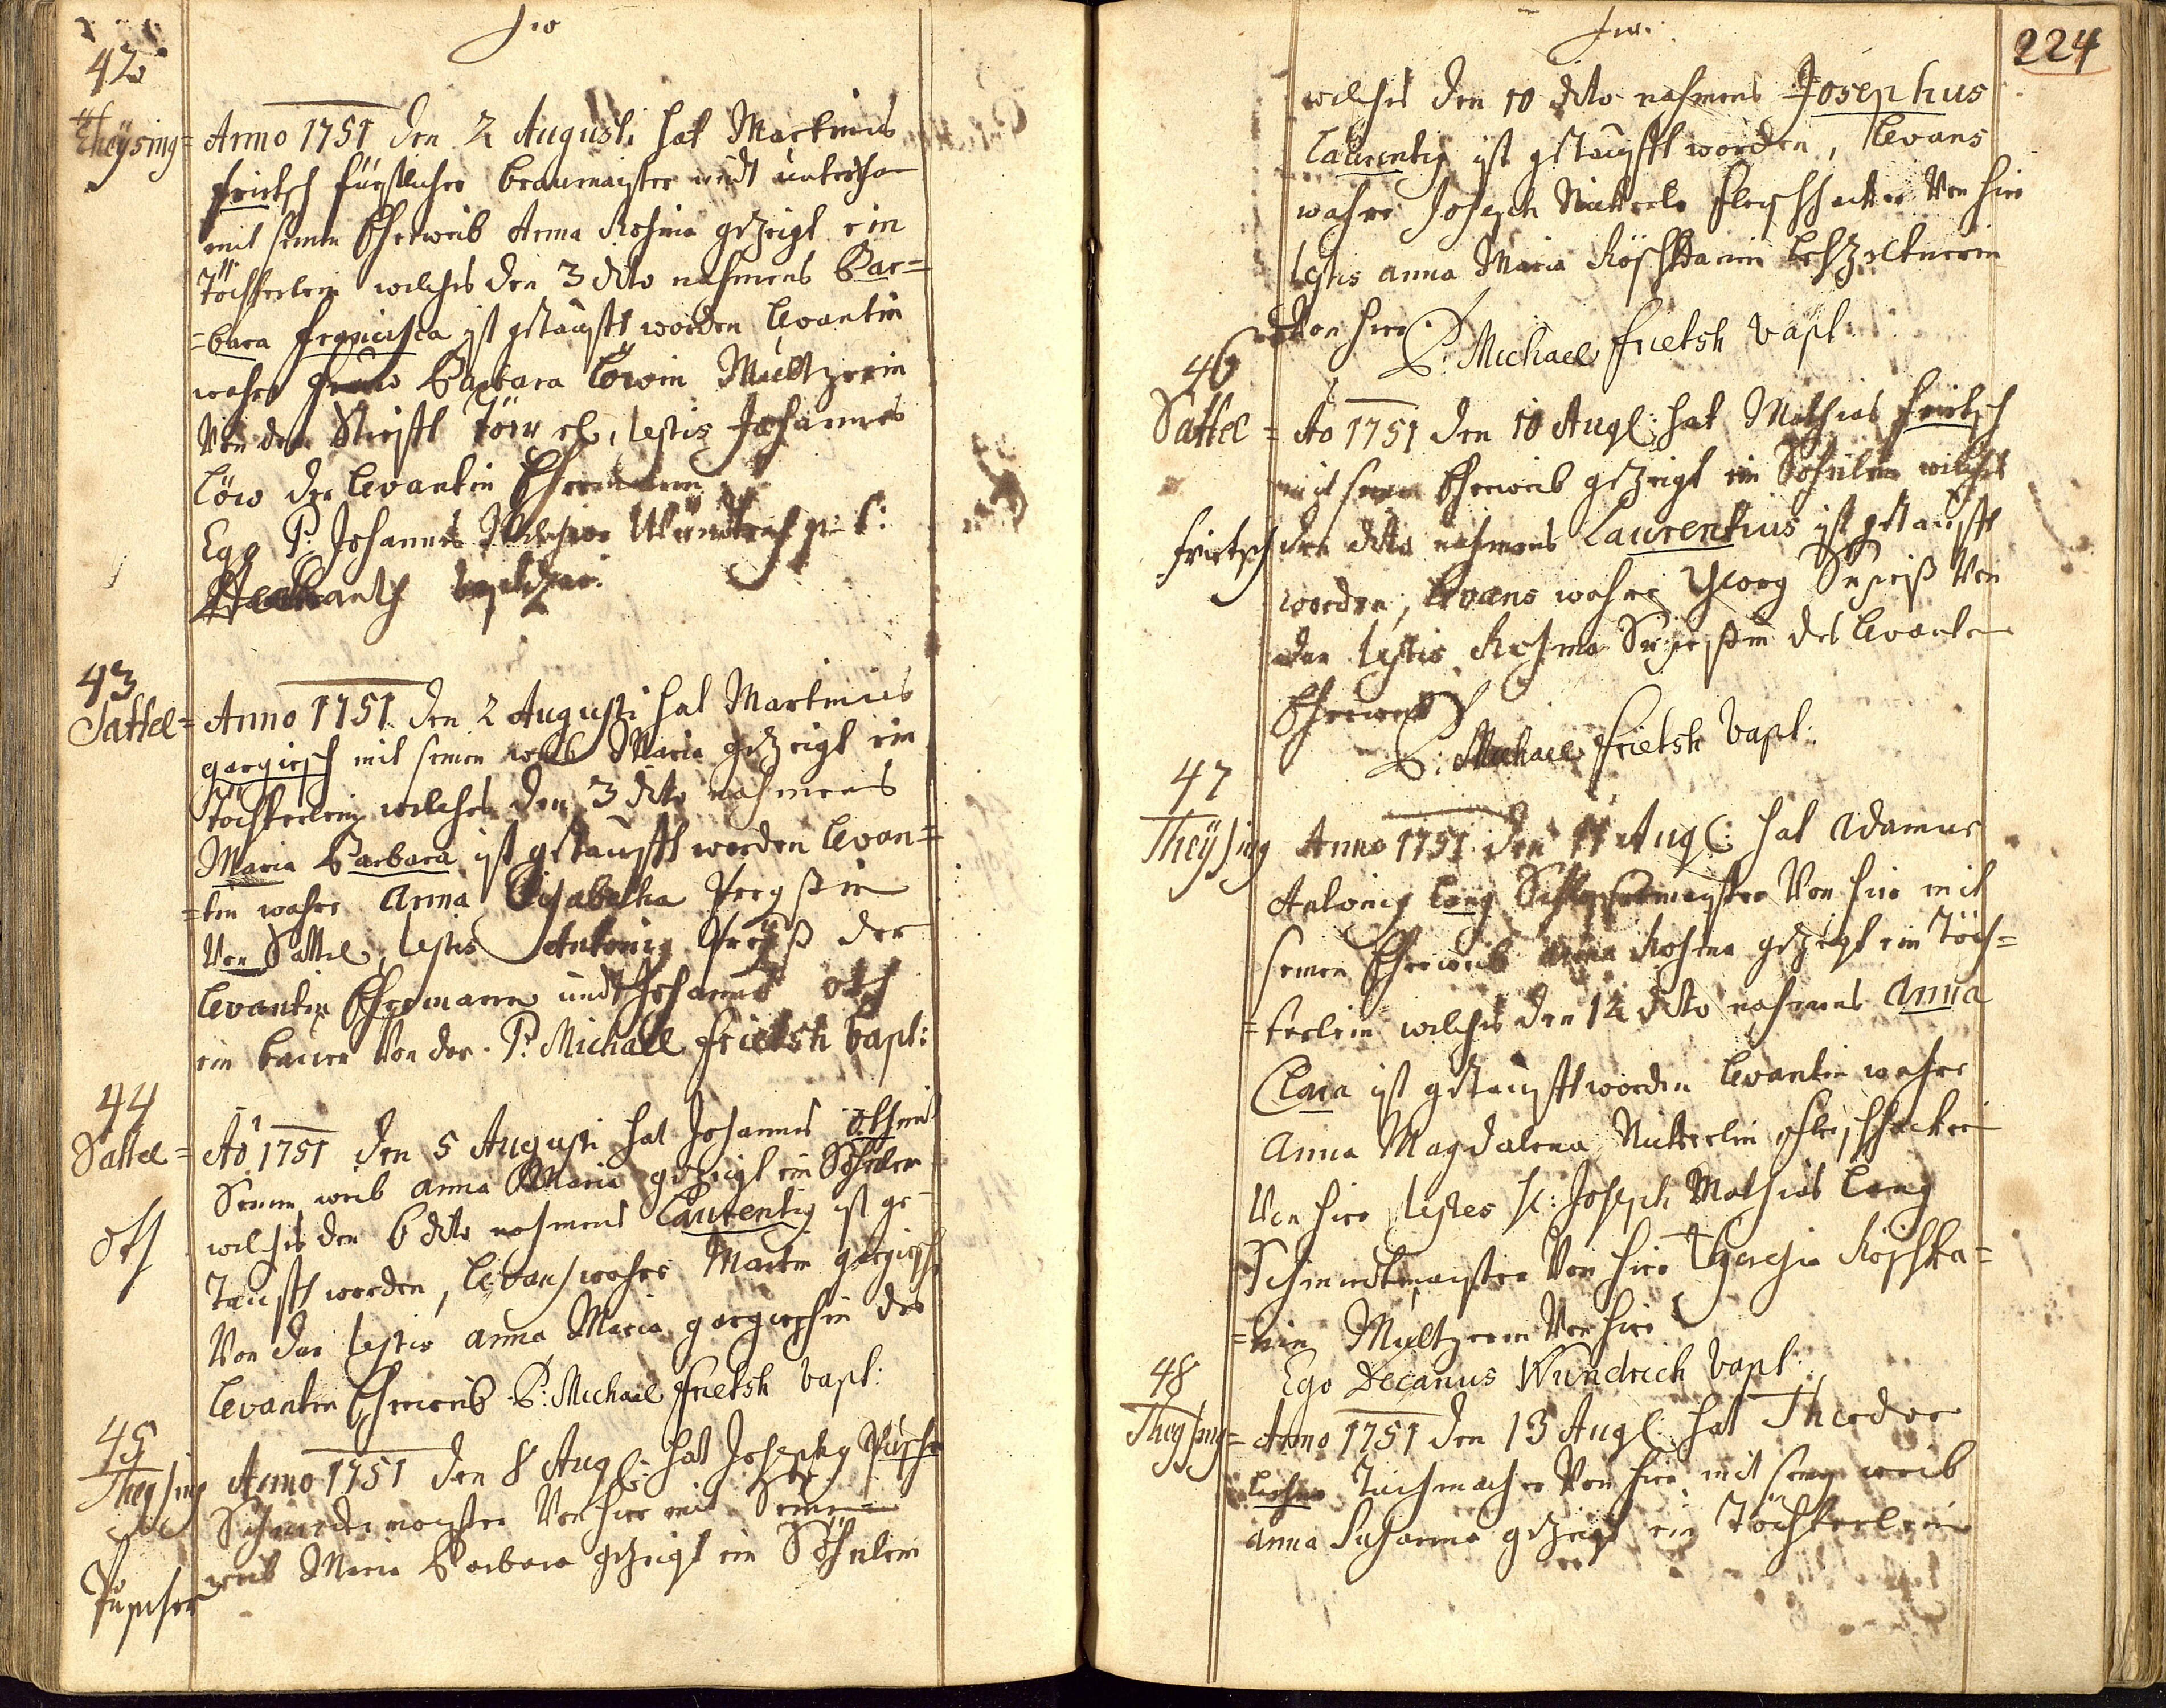 42
Theysing = Anno 1751 den 2 Augusti hat Martinus
Frietsch fürstlicher Breumayster undt
mit seinen Eheweib Anna Rosina gezeigt ein
Töchterlein welches den 3 dito nahmens Bar=
=bara Francisca ist getaufft worden Levantin
wahre Barbara Löwin Mültzerin
Von der Stifft Töpel, testis Johannes
Löw der Levantin Ehemann
Ego P. Johannes Wündrich p. t.
43
Sattel = Anno 1751 den 2 Augusti hat Martinus
gargirsch mit seinen weib Maria gezeigt ein
Töchterlein welches den 3 dito nahmens
Maria Barbara ist getaufft worden Levan=
=tin wahre Anna Elisabetha
Von Sattel, testis Antonig der
Levantin Ehemann undt Johannes Oth
ein bauer Von dar. P. Michael Frietsh bapt:
44
Sattel = Ao 1751 den 5 Augusti hat Johannes Oth mit
Seinen weib Anna Maria gezeigt ein Söhnlein
Oth
welches den 6 dito nahmens Laurentig ist ge=
Taufft worden, Levans wahre Martin gargirsch
Von dar testis Anna Maria gargirschin des
Levanten Eheweib P. Michael Frietsh bapt:
45
Theysing Anno 1751 den 8 Augl: hat Josephg Püscher
Schneidermayster Von hier mit Seinen
Püscher weib Maria Barbara gezeigt ein Söhnlein
224
welches den 10 dito nahmens Josephus
Laurentig ist getaufft worden, Levans
wahre Joseph Nickerle Fleischhacker Von hier
testis Anna Maria Röschkanin Lebzeltnerin
Von hier P. Michael Frietsh bapt:
46
Sattel = Ao 1751 den 10 Augl: hat Mathias Frietsch
mit seinen Eheweib gezeigt ein Söhnlein welches
Frietsch den dito nahmens Laurentius ist getaufft
worden, Levans wahre Georg Von
dar testis Rosina des Levanten
Eheweib
P. Michael Frietsh bapt:
47
Theysing Anno 1751 den 11 Augl: hat Adamus
Antonig Lang Schlossermayster Von hier mit
seinen Eheweib Anna Rosina gezeigt ein Töch=
=terlein welches den 12 dito nahmens Anna
Clara ist getaufft worden Levantin wahre
Anna Magdalena Nickerlin Fleischhackerin
Von hier testes H: Joseph Mathias Lang
Schmiedtmayster Von hier Theresia Röschka=
=nin Mültzerin Von hier
Ego Decanus Wündrich bapt:
48
Theysing = Anno 1751 den 13 Augl: hat Theodor
Tuchmacher Von hier mit seinen weib
Anna Susanna gezeigt ein Töchterlein